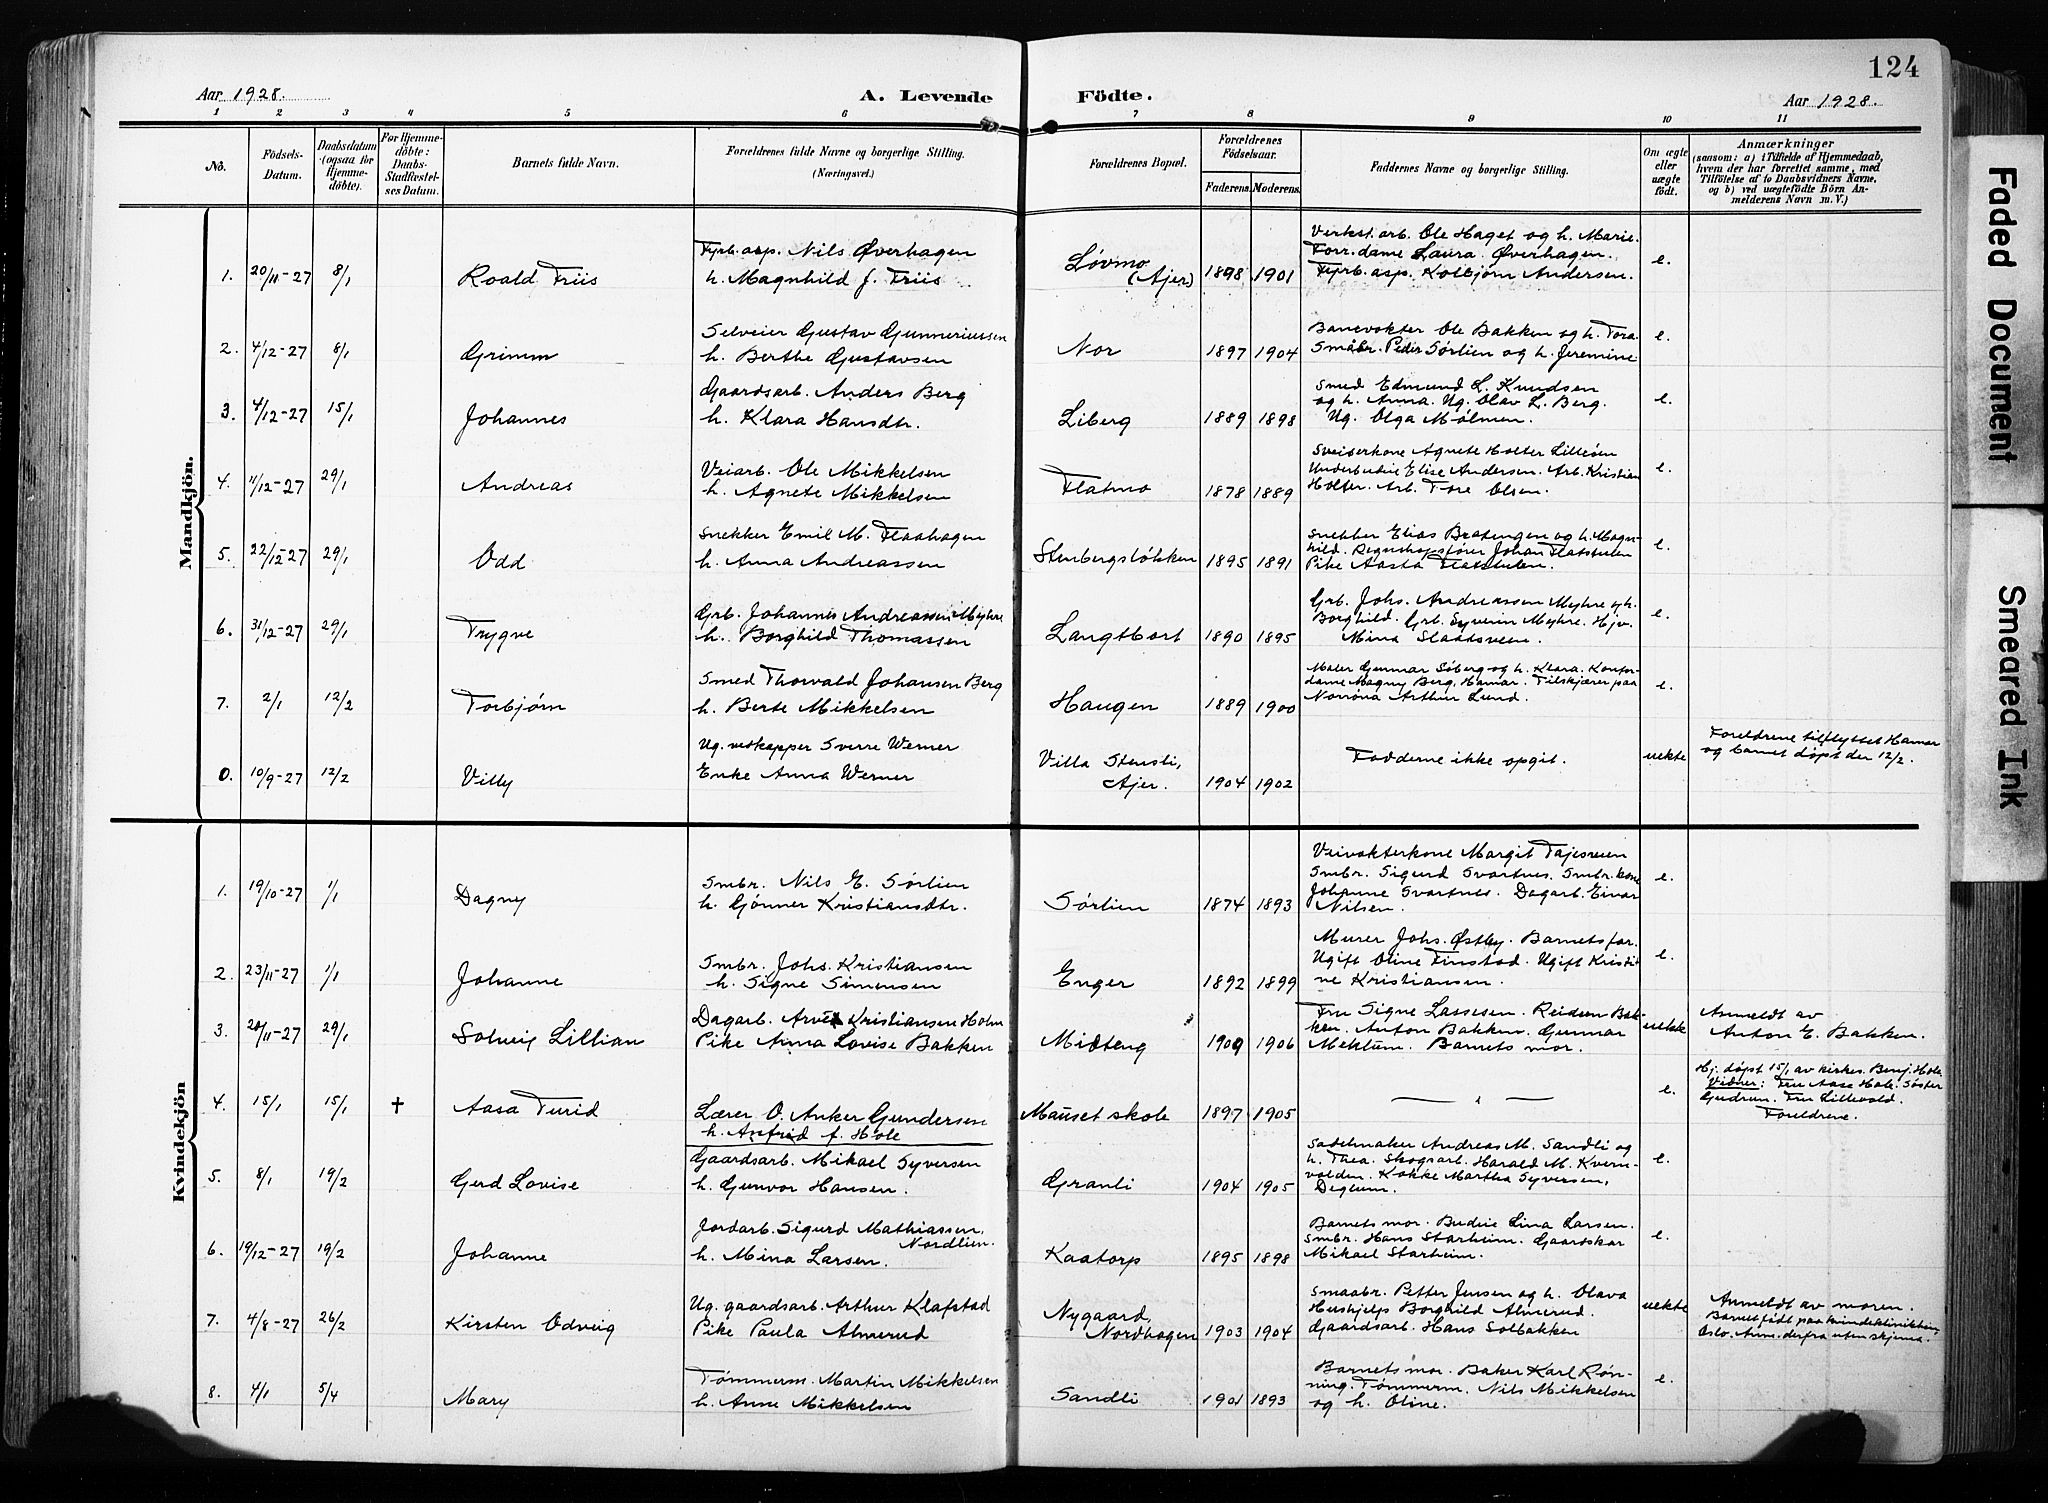 124
Aar 1928.
A. Levende Födte.
Aar 1928.
1 2 3 4 5 6 7 8 9 10 11
No.
Födsels-
Datum.
Daabsdatum
(ogsaa for
Hjemme-
döbte).
For Hjemme-
döbte:
Daabs-
Stadfæstel-
ses Datum.
Barnets fulde Navn.
Forældrenes fulde Navne og borgerlige Stilling.
(Næringsvei.)
Forældrenes Bopæl.
Forældrenes
Födselsaar.
Faderens. Moderens.
Faddernes Navne og borgerlige Stilling.
Om ægte
eller
uægte
födt.
Anmærkninger
(saasom: a) i Tilfælde af Hjemmedaab,
hvem der har forrettet samme, med
Tilföielse af to Daabsvidners Navne,
og b) ved uægtefödte Börn An-
melderens Navn m. V.)
Mandkjön.
1. 20/11-27 8/1 Roald Friis
Fyrb. asp. Nils Øverhagen
h. Magnhild f. Friis
Løvmo
(Ajer)
1898 1901
Verkst. arb. Ole Haget og h. Marie.
Forr. dame Laura Øverhagen.
Fyrb. asp. Kolbjørn Andersen.
e.
2. 4/12-27 8/1 Grimm
Selveier Gustav Gunneriussen
h. Berthe Gustavsen
Nor
1897 1904
Banevokter Ole Bakken og h. Tora.
Småbr. Peder Sørlien og h. Jeremine
e.
3. 4/12-27 15/1 Johannes
Gaardsarb. Anders Berg
h. Klara Hansdtr.
Liberg
1889 1898
Smed Edmund L. Knudsen
og h. Anna. Ug. Olav L. Berg.
Ug. Olga Mølmen.
e.
4. 11/12-27 29/1 Andreas
Veiarb. Ole Mikkelsen
h. Agnete Mikkelsen
Flatmo
1878 1889
Sveiserkone Agnete Holter Lilleøen
Underbudeie Elise Andersen. Arb. Kristian
Holter. Arb. Tore Olsen.
e.
5. 22/12-27 29/1 Odd
Snekker Emil M. Flaahagen
h. Anna Andreassen
Stenbergsløkken
1895 1891
Snekker Elias Bratengen og h. Magn-
hild. Regnskapsfører Johan Flatstulen
Pike Aasta Flatstulen.
e.
6. 31/12-27 29/1 Trygve
Grb. Johannes Andreassen Myhre
h. Borghild Thomassen
Langtbort
1890 1895
Grb. Johs. Andreassen Myhre og h.
Borghild. Grb. Syverin Myhre. Hjv.
Mina Slaatsveen.
e.
7. 2/1 12/2 Torbjørn
Smed Thorvald Johansen Berg
h. Berte Mikkelsen
Haugen
1889 1900
Maler Gunnar Søberg og h. Klara. Kontor-
dame Magny Berg, Hamar. Tilskjærer paa
Norrøna Arthur Lund.
e.
0. 10/9-27 12/2 Villy
Ug. vedkapper Sverre Werner
Enke Anna Werner
Villa Stensli,
Ajer.
1904 1902
Fadderne ikke opgit.
uekte
Foreldrene tilflyttet Hamar
og barnet døpt der 12/2.
Kvindekjön
1. 19/10-27 1/1 Dagny
Smbr. Nils E. Sørlien
h. Gjønner Kristiansdtr.
Sørlien
1874 1893
Veivokterkone Margit Tajesveen
Smbr. Sigurd Svartnes. Smbr. kone
Johanne Svartnes. Dagarb. Einar
Nilsen.
e.
2. 23/11-27 1/1 Johanne
Smbr. Johs. Kristiansen
h. Signe Simensen
Enger
1892 1899
Murer Johs. Østby. Barnets far.
Ugift Oline Finstad. Ugift Kristi-
ne Kristiansen.
e.
3. 20/11-27 29/1 Solveig Lillian
Dagarb. Arve Kristiansen Holm
Pike Anna Lovise Bakken
Midteng
1909 1906
Fru Signe Lassesen. Reidun Bak-
ken. Anton Bakken. Gunnar
Meklum. Barnets mor.
uekte
Anmeldt av
Anton E. Bakken.
4. 15/1 15/1 † Aasa Turid
Lærer O. Anker Gundersen
h. Anfrid f. Hole
Mauset skole
1897 1905
— " —
e.
Hj. døpt 15/1 av kirkes. Benj. Hole
Vidner: Fru Aasa Hole. Søster
Gudrun. Fru Lillevold.
Foreldrene.
5. 8/1 19/2 Gerd Lovise
Gaardsarb. Mikael Syversen
h. Gunvor Hansen.
Granli
1904 1905
Sadelmaker Andreas M. Sandli og
h. Thea. Skogsarb. Harald M. Kvern-
volden. Kokke Martha Syversen,
Deglum.
e.
6. 19/12-27 19/2 Johanne
Jordarb. Sigurd Mathiassen
Nordlien.
h. Mina Larsen.
Kaatorp
1895 1898
Barnets mor. Budeie Lina Larsen.
Smbr. Hans Starheim. Gaardskar
Mikael Starheim.
e.
7. 4/8-27 26/2 Kirsten Odveig
Ug. gaardsarb. Arthur Klafstad
Pike Paula Almerud
Nygaard,
Nordhagen
1903 1904
Smaabr. Petter Jensen og h. Olava
Hushjelp Borghild Almerud.
Gaardsarb. Hans Solbakken
uekte
Anmeldt av moren.
Barnet født paa kvindeklinikken,
Oslo. Anm. derfra uten skjema.
8. 4/1 5/4 Mary
Tømmerm. Martin Mikkelsen
h. Anne Mikkelsen
Sandli
1901 1893
Barnets mor. Baker Karl Røn-
ning. Tømmerm. Nils Mikkelsen
og h. Oline.
e.
Faded Document
Smeared Ink